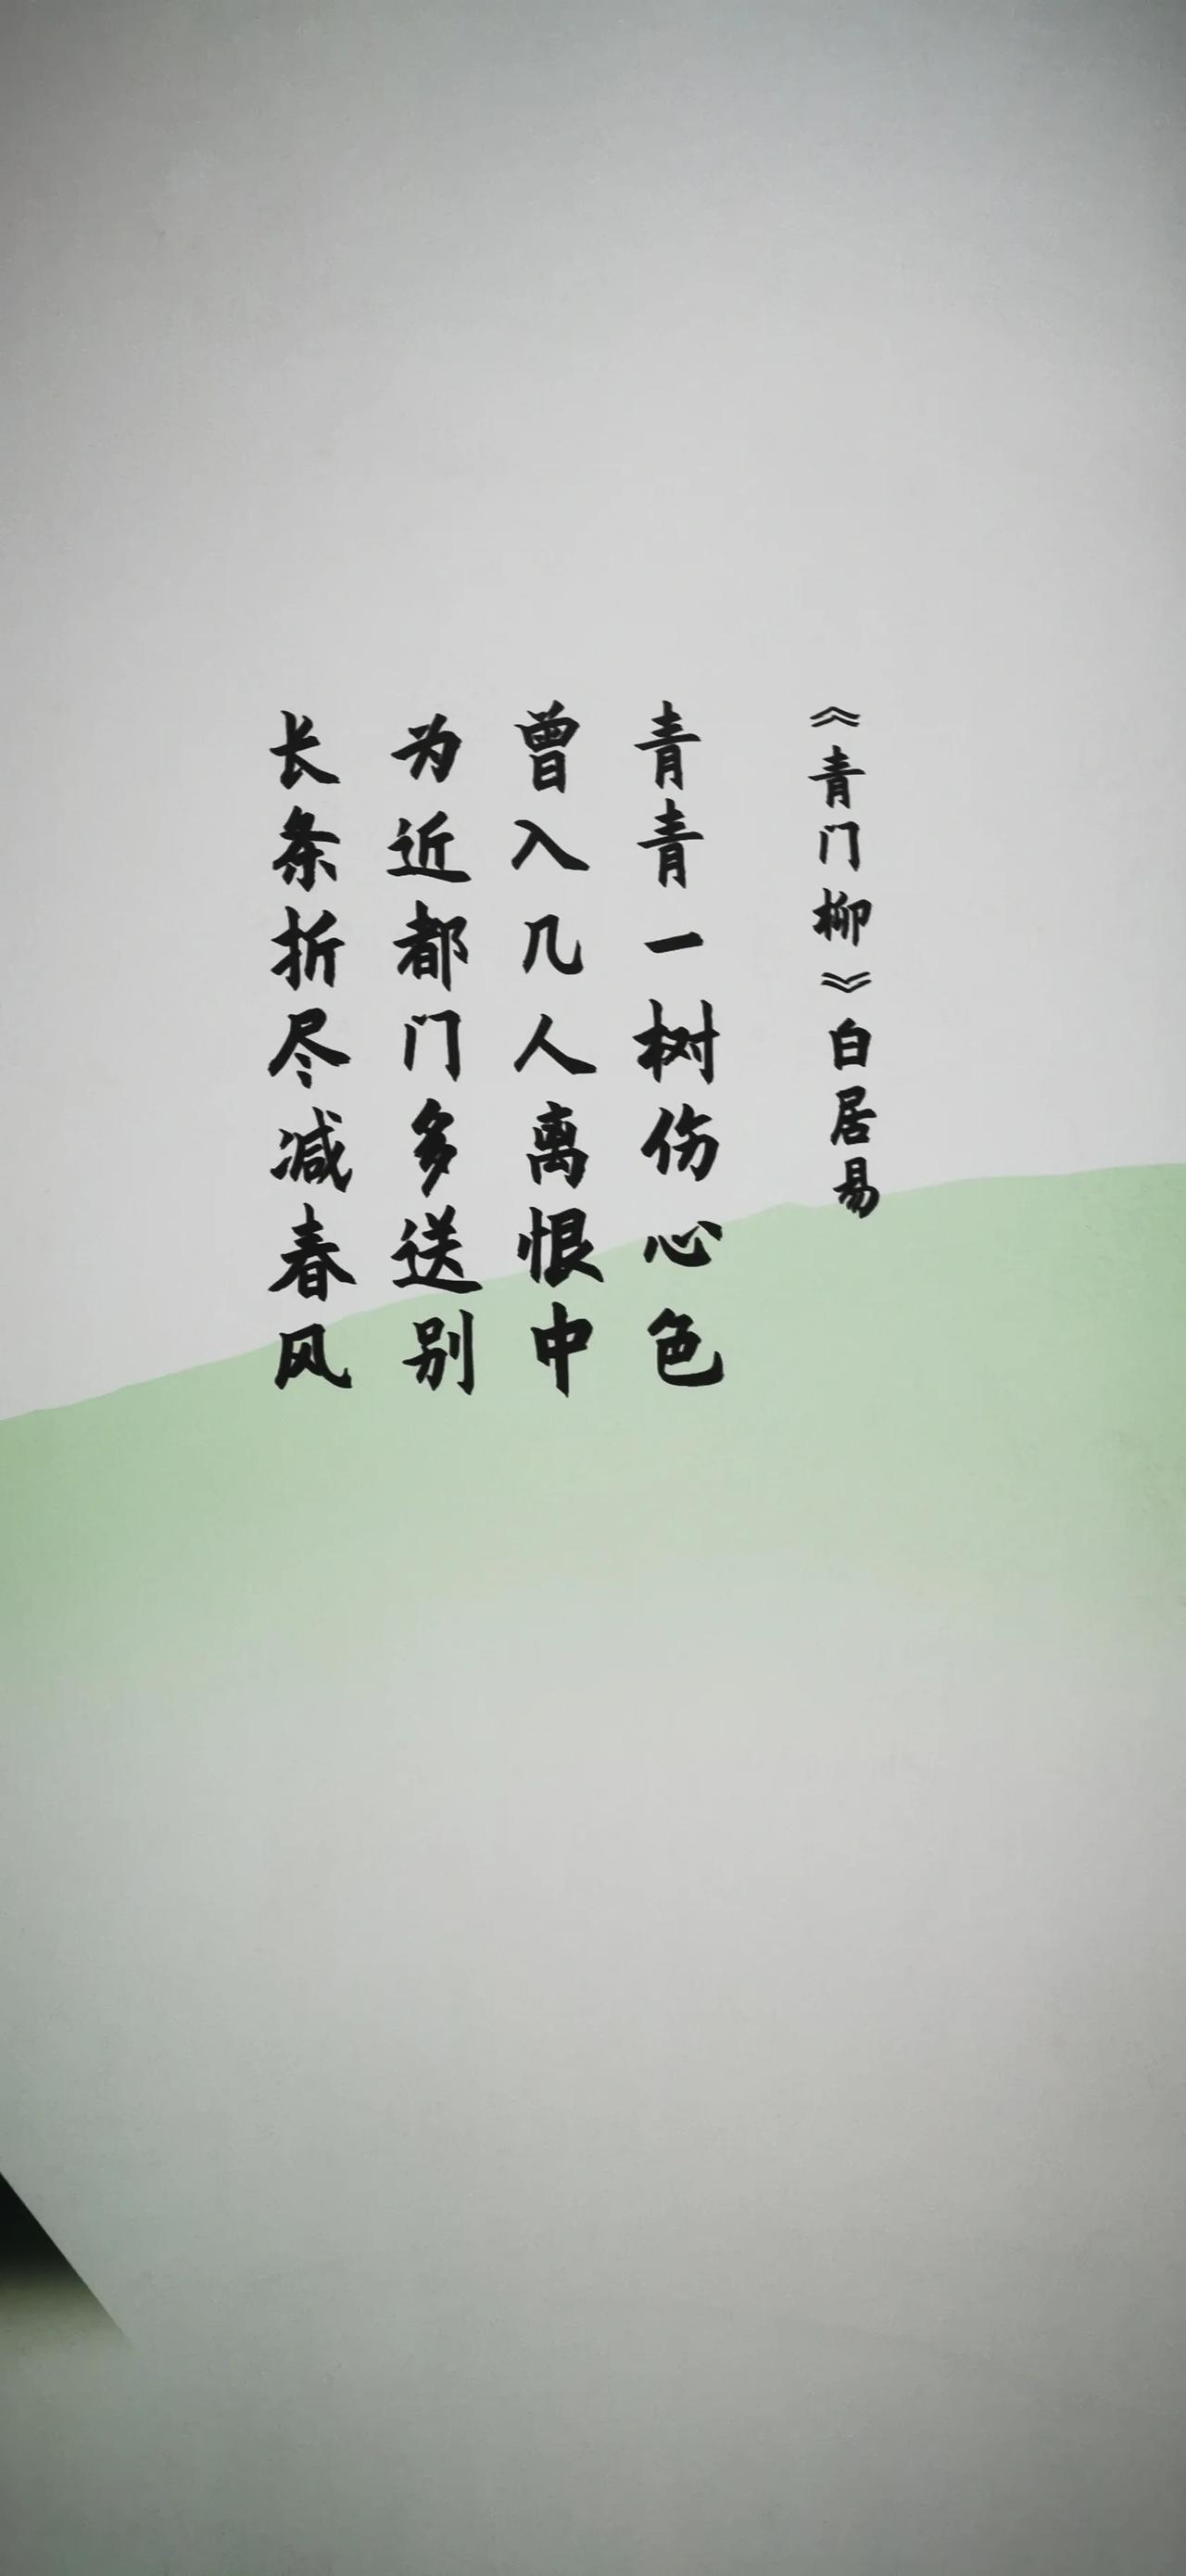 《青门柳》白居易
青青一树伤心色
曾入几人离恨中
为近都门多送别
长条折尽减春风